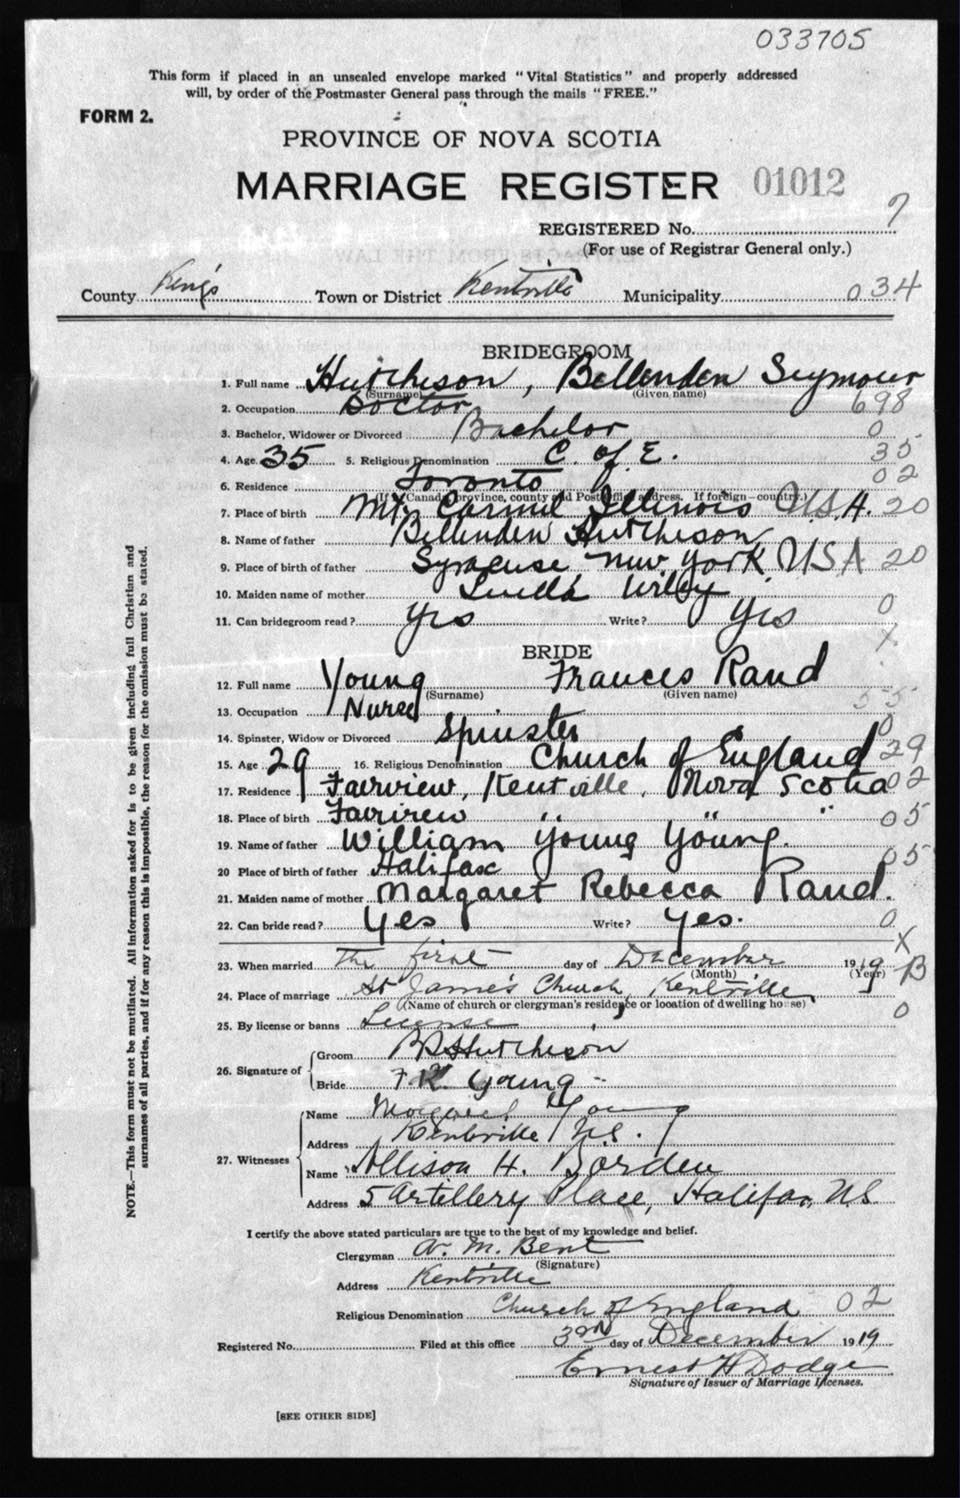 033705
This form if placed in an unsealed envelope marked "Vital Statistics" and properly addressed
will, by order of the Postmaster General pass through the mails "FREE."
FORM 2.
PROVINCE OF NOVA SCOTIA
MARRIAGE REGISTER 01012
REGISTERED No. 7
(For use of Registrar General only.)
County King's Town or District Kentville Municipality 034
BRIDEGROOM
1. Full name Hutcheson, Bellenden Seymour
(Surname) (Given name)
2. Occupation Doctor 698
3. Bachelor, Widower or Divorced Bachelor 0
4. Age 35 5. Religious Denomination C. of E. 35
6. Residence Toronto 02
(If Canada province, county and Post office address. If foreign—country.)
7. Place of birth Mt. Carmel Illinois U.S.A. 20
8. Name of father Bellenden Hutcheson
9. Place of birth of father Syracuse New York USA 20
10. Maiden name of mother Luella Wiley
11. Can bridegroom read? Yes Write? Yes 0
X
BRIDE
12. Full name Young Frances Rand
(Surname) (Given name)
13. Occupation Nurse 55
14. Spinster, Widow or Divorced Spinster 0
15. Age 29 16. Religious Denomination Church of England 29
17. Residence Fairview, Kentville, Nova Scotia 02
18. Place of birth Fairview " " " 05
19. Name of father William Young Young.
20 Place of birth of father Halifax 05
21. Maiden name of mother Margaret Rebecca Rand.
22. Can bride read? Yes Write? Yes. 0
X
23. When married The first day of December 1919 B
(Month) (Year)
24. Place of marriage St James's Church, Kentville
(Name of church or clergyman's residence or location of dwelling house)
25. By license or banns License 0
26. Signature of Groom BS Hutcheson
Bride F R Young
27. Witnesses Name Margaret Young
Address Kentville N.S.
Name Allison H. Borden
Address 5 Artillery Place, Halifax, N S
I certify the above stated particulars are true to the best of my knowledge and belief.
Clergyman A. M. Bent
(Signature)
Address Kentville
Religious Denomination Church of England 02
Registered No. Filed at this office 3rd day of December 1919
Ernest H Dodge
Signature of Issuer of Marriage Licenses.
[SEE OTHER SIDE]
NOTE.—This form must not be mutilated. All information asked for is to be given including full Christian and
surnames of all parties, and if for any reason this is impossible, the reason for the omission must be stated.